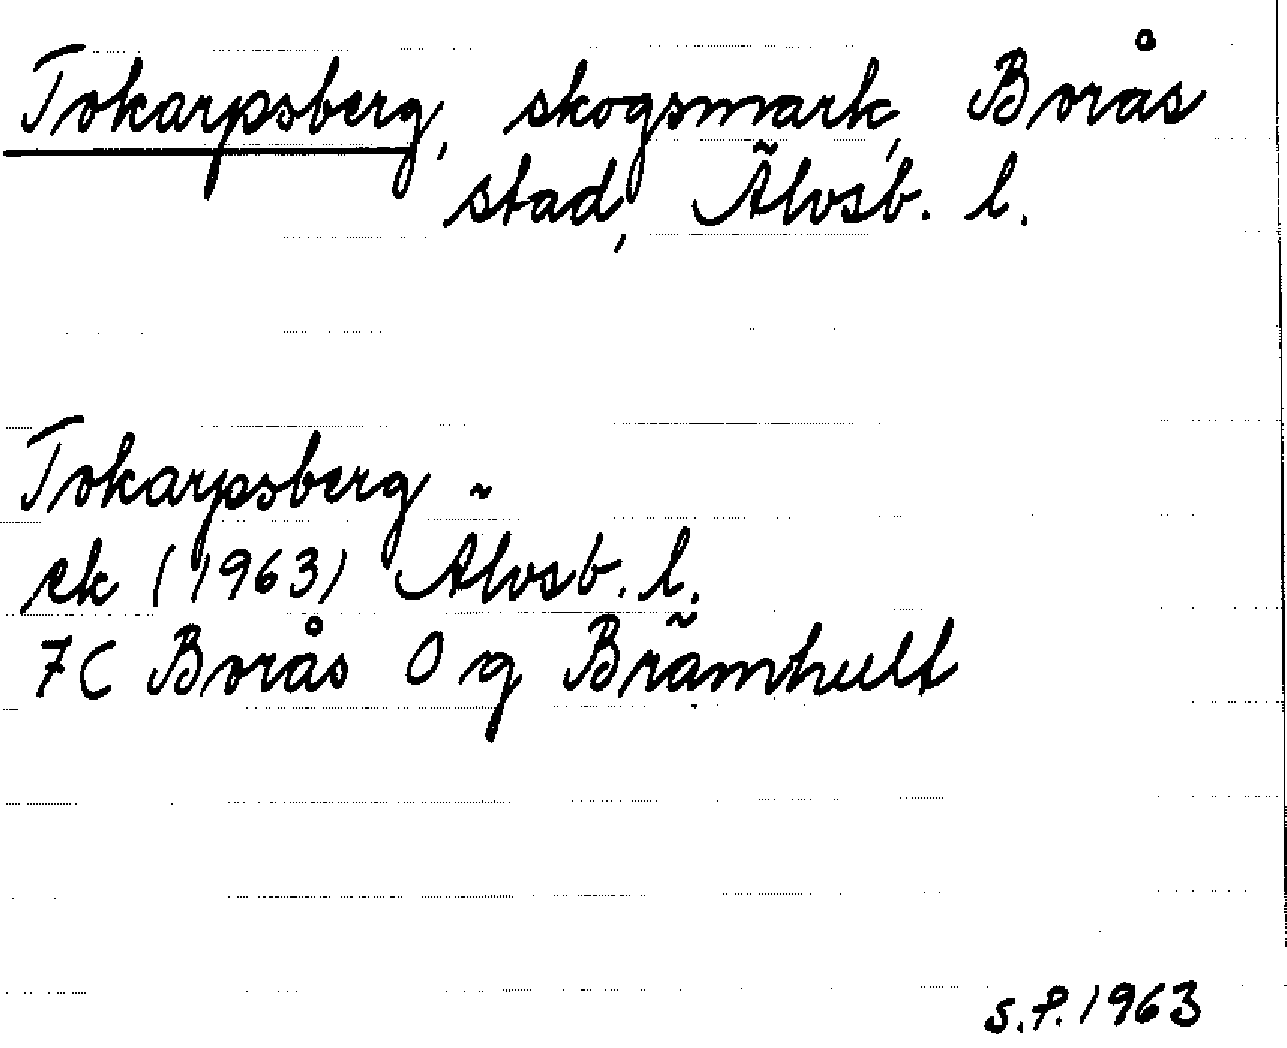 Tokarpsberg, skogsmark, Borås
stad, Älvsb. l.
Tokarpsberg ~
ek (1963) Älvsb. l.
7C Borås O g Brämhult
S.P. 1963